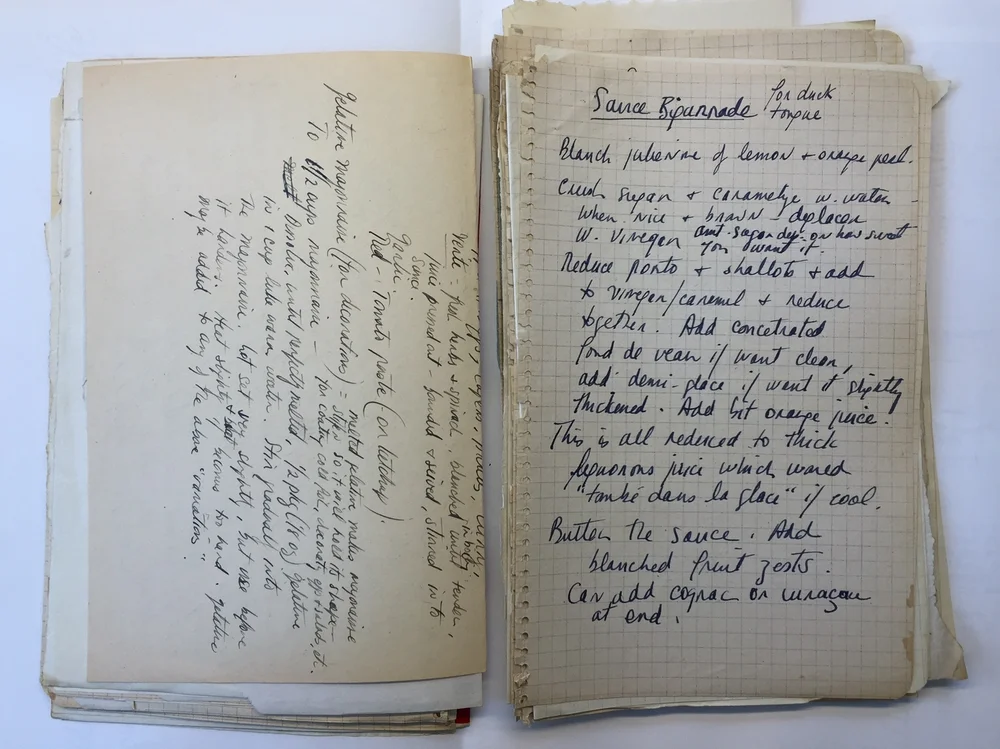 Gelatine Mayonnaise (for decorations) = melted gelatine makes mayonnaise
To 1 1/2 cups mayonnaise - stiffen so it will hold its shape -
for coating cold fish, decorating eggs + salads, et.
Dissolve, until perfectly melted, 1/2 pkg (1/8 oz) gelatine
in 1 cup luke warm water. Stir gradually into
the mayonnaise. Let set very slightly, but use before
it hardens. Heat slightly if becomes too hard. gelatine
may be added to any of the above "variations".
capers, pickles,
Verte - Fresh herbs + spinach, blanched until tender,
in boiling
juice pressed out - pounded + seived, stirred into
sauce.
Garlic.
Red - Tomato paste (or ketchup).
Sauce Bigarrade for duck
tongue
Blanch julienne of lemon + orange peel.
Crush sugar + caramelize w. water
When nice + brown - deplacer
w. vinegar amt. sugar dep. on how sweet
you want it.
Reduce porto + shallots + add
to vinegar/caramel + reduce
together. Add concetrated
fond de veau if want clear,
add demi-glace if want it slightly
thickened. Add bit orange juice.
This is all reduced to thick
liquorous juice which would
"tombé dans la glace" if cool.
Butter the sauce. Add
blanched fruit zests.
Can add cognac or curaçao
at end.